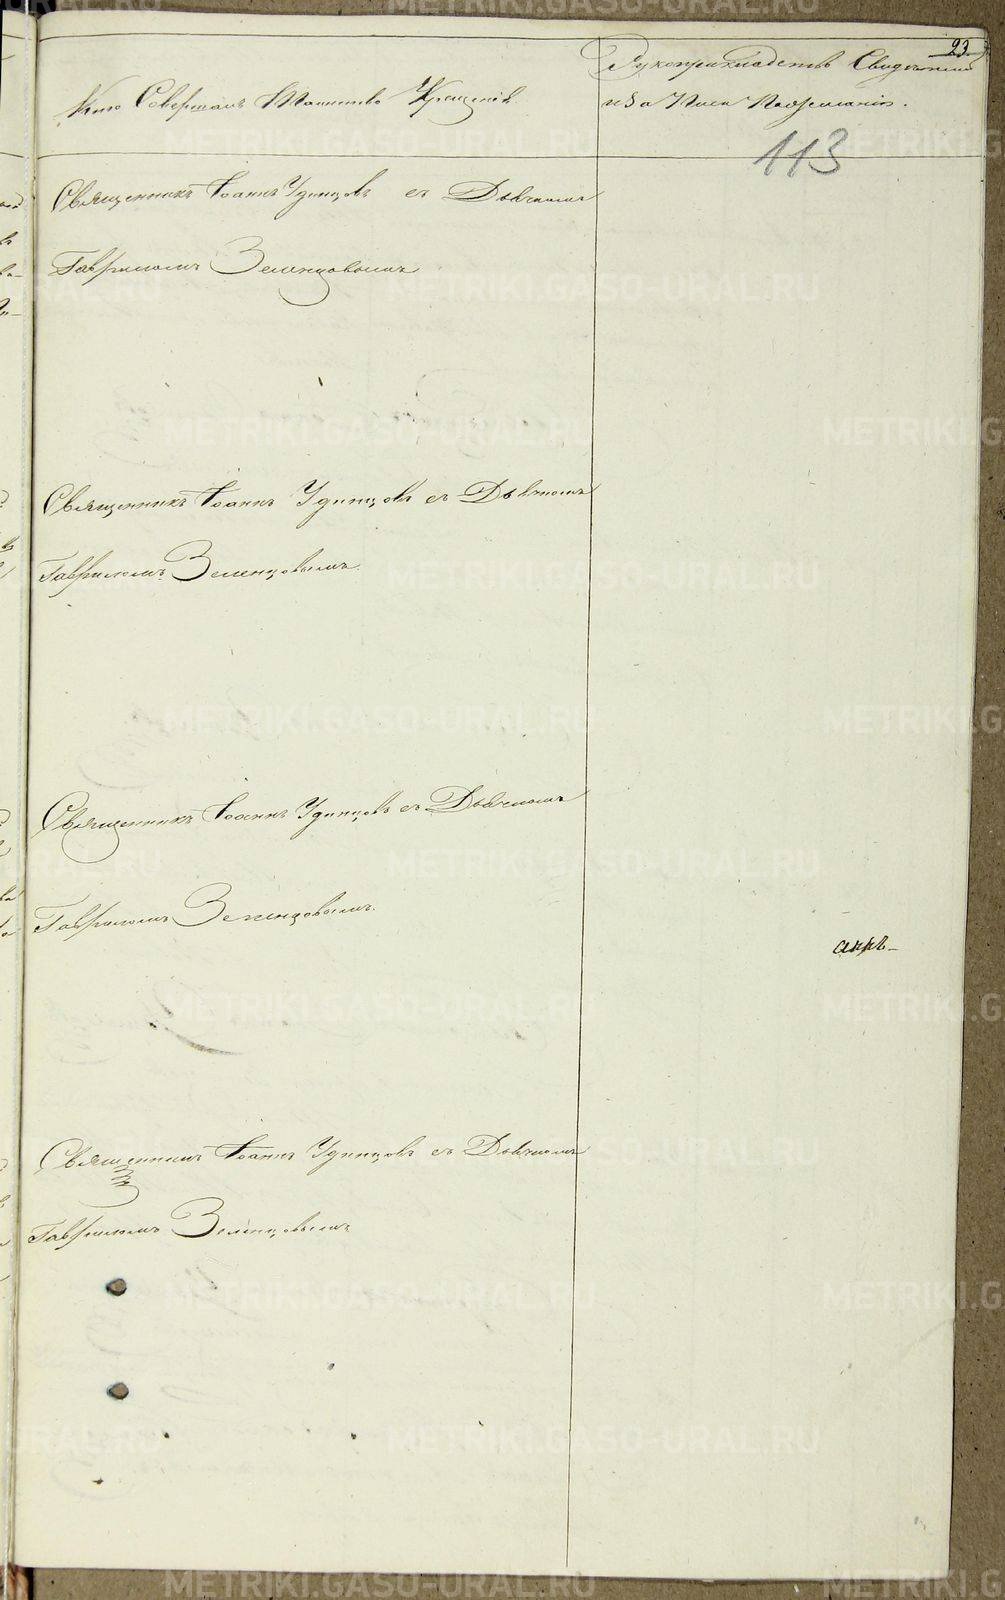 23
Рукоприкладство Свидѣтелей
Кто Совершалъ Таинство Крещенія
и За Ихъ Пожеланію.
113
Священникъ Іоаннъ Удинцовъ съ Дьячкомъ
Гавриломъ Зеленцовымъ
Священникъ Іоаннъ Удинцовъ съ Дьячкомъ
Гавриломъ Зеленцовымъ.
Священникъ Іоаннъ Удинцовъ съ Дьячкомъ
Гавриломъ Зеленцовымъ.
Священникъ Іоаннъ Удинцовъ съ Дьячкомъ
Гавриломъ Зеленцовымъ
METRIKI.GASO-URAL.RU